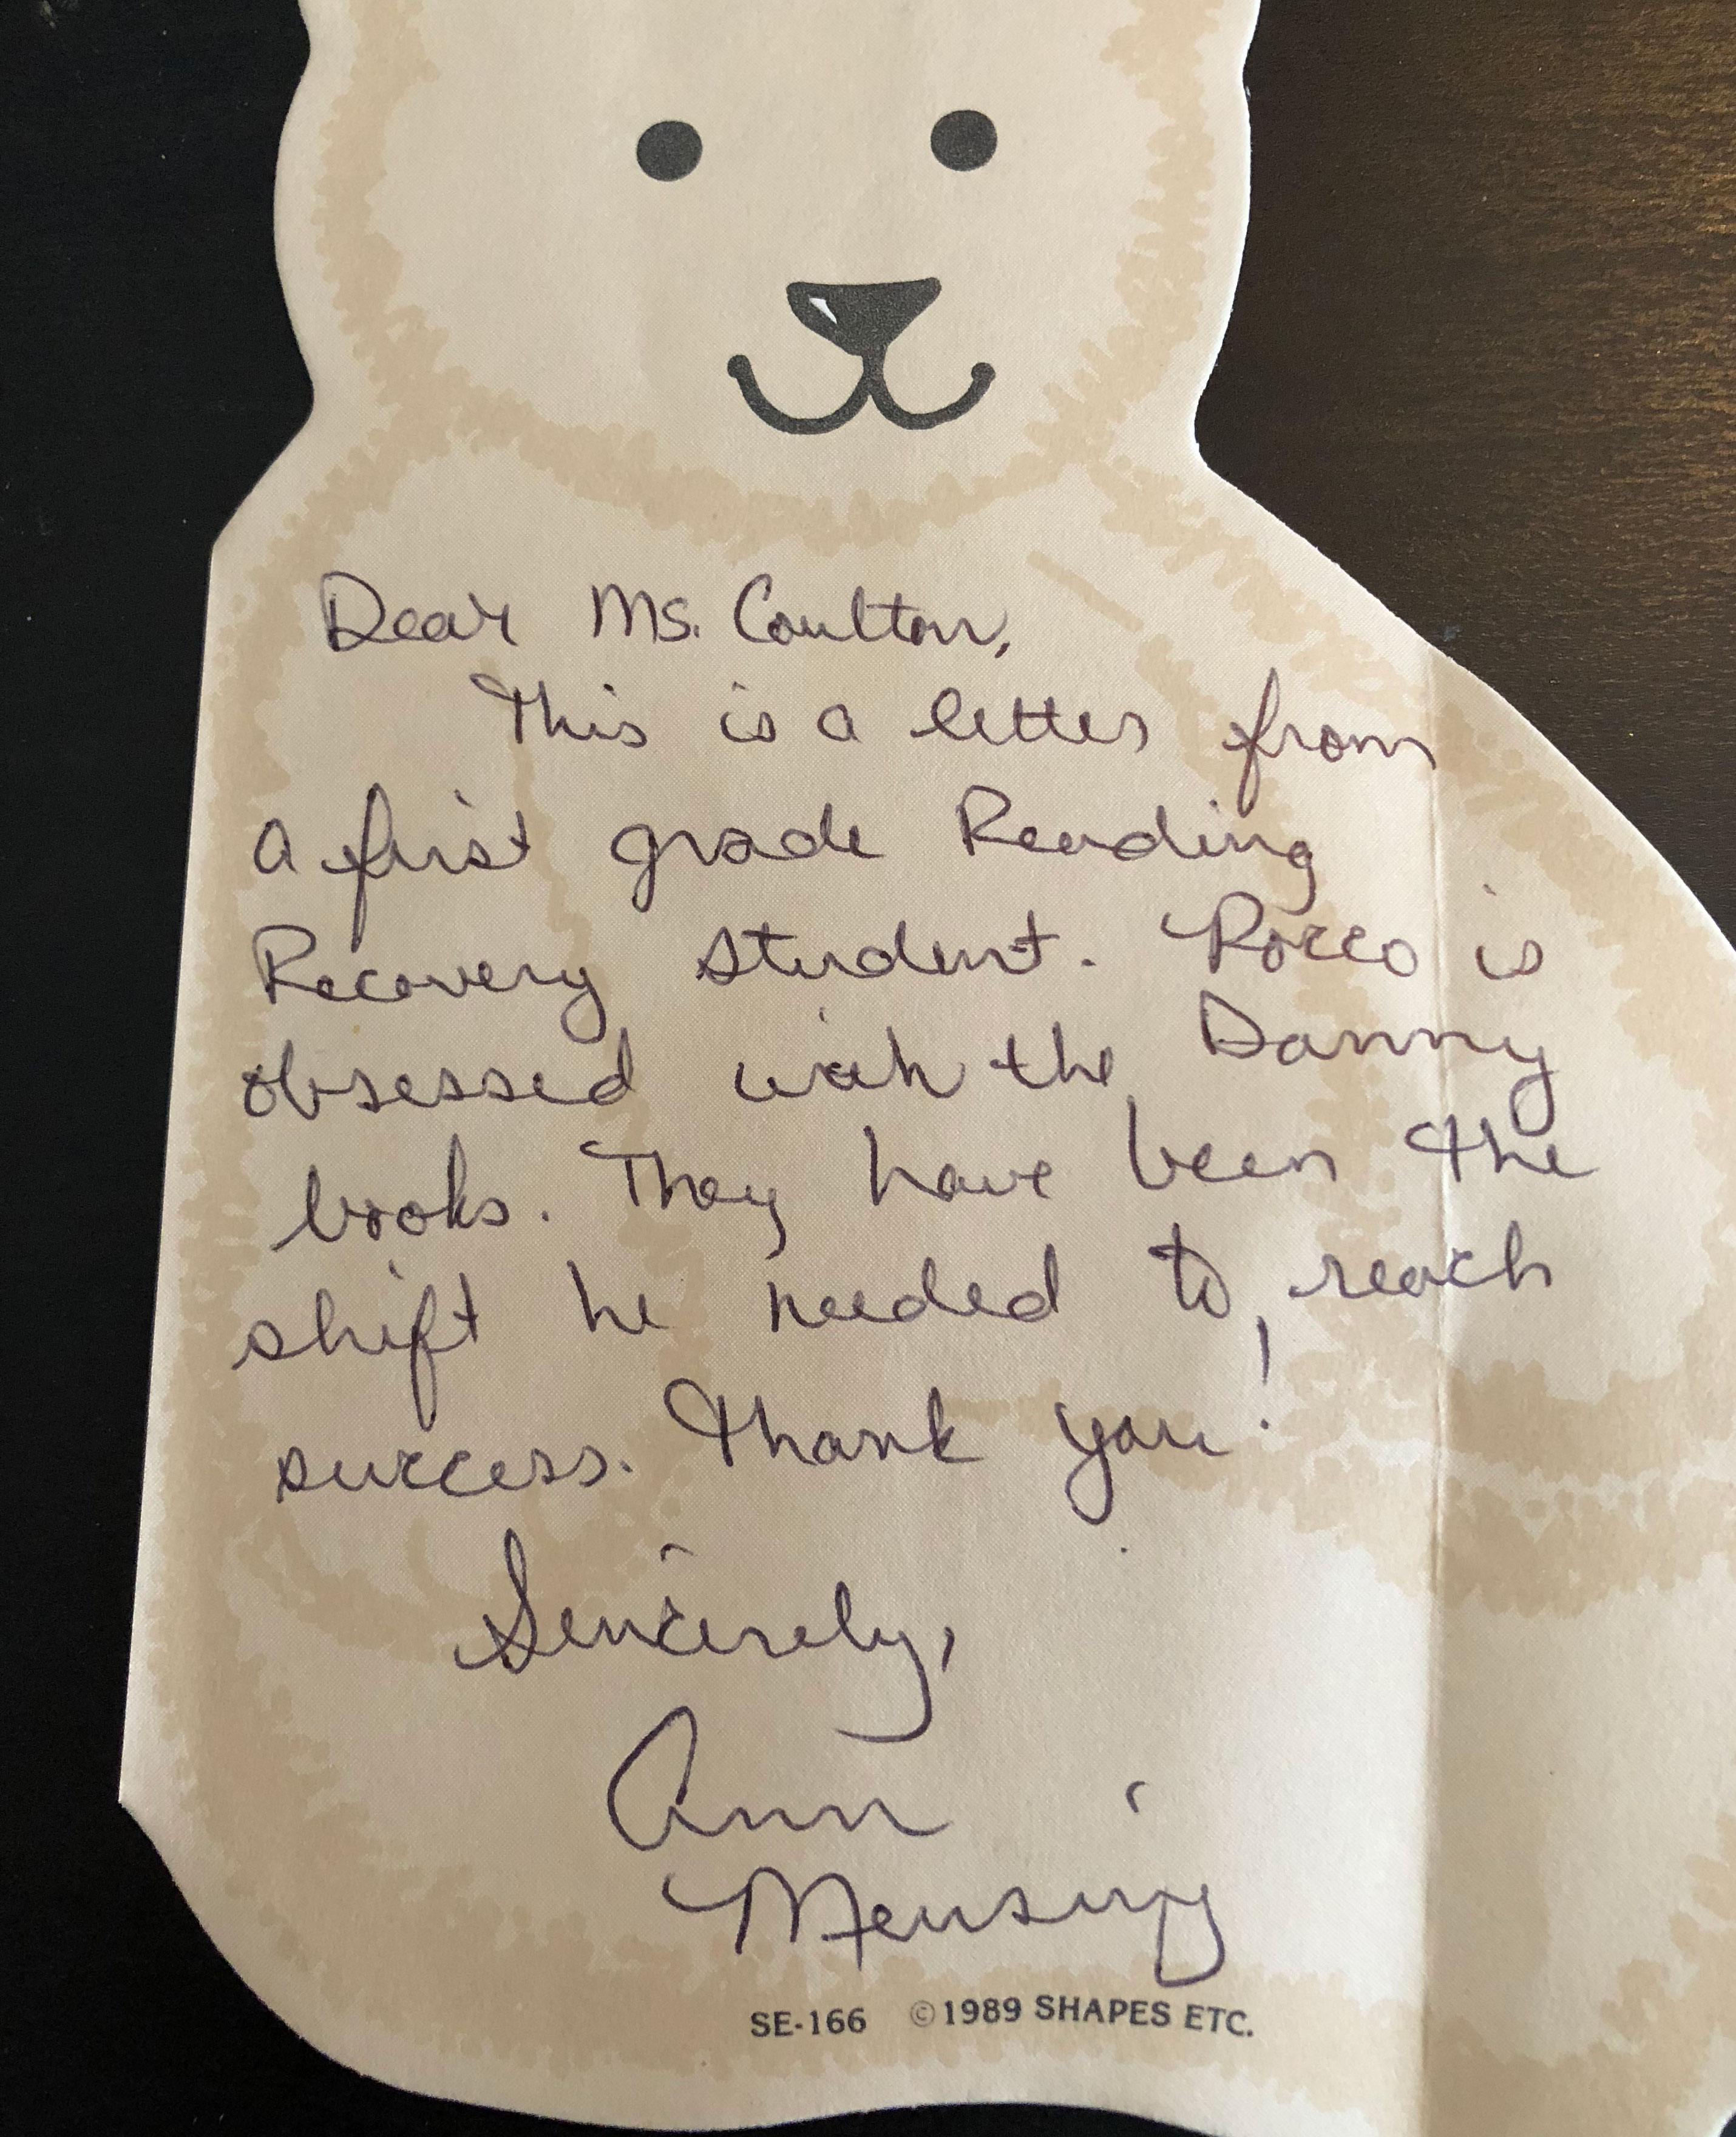 Dear Ms. Coulton,
This is a letter from
a first grade Reading
Recovery student. Rocco is
obsessed with the Danny
books. They have been the
shift he needed to reach
success. Thank you!
Sincerely,
Ann
Mensing
SE-166 ©1989 SHAPES ETC.